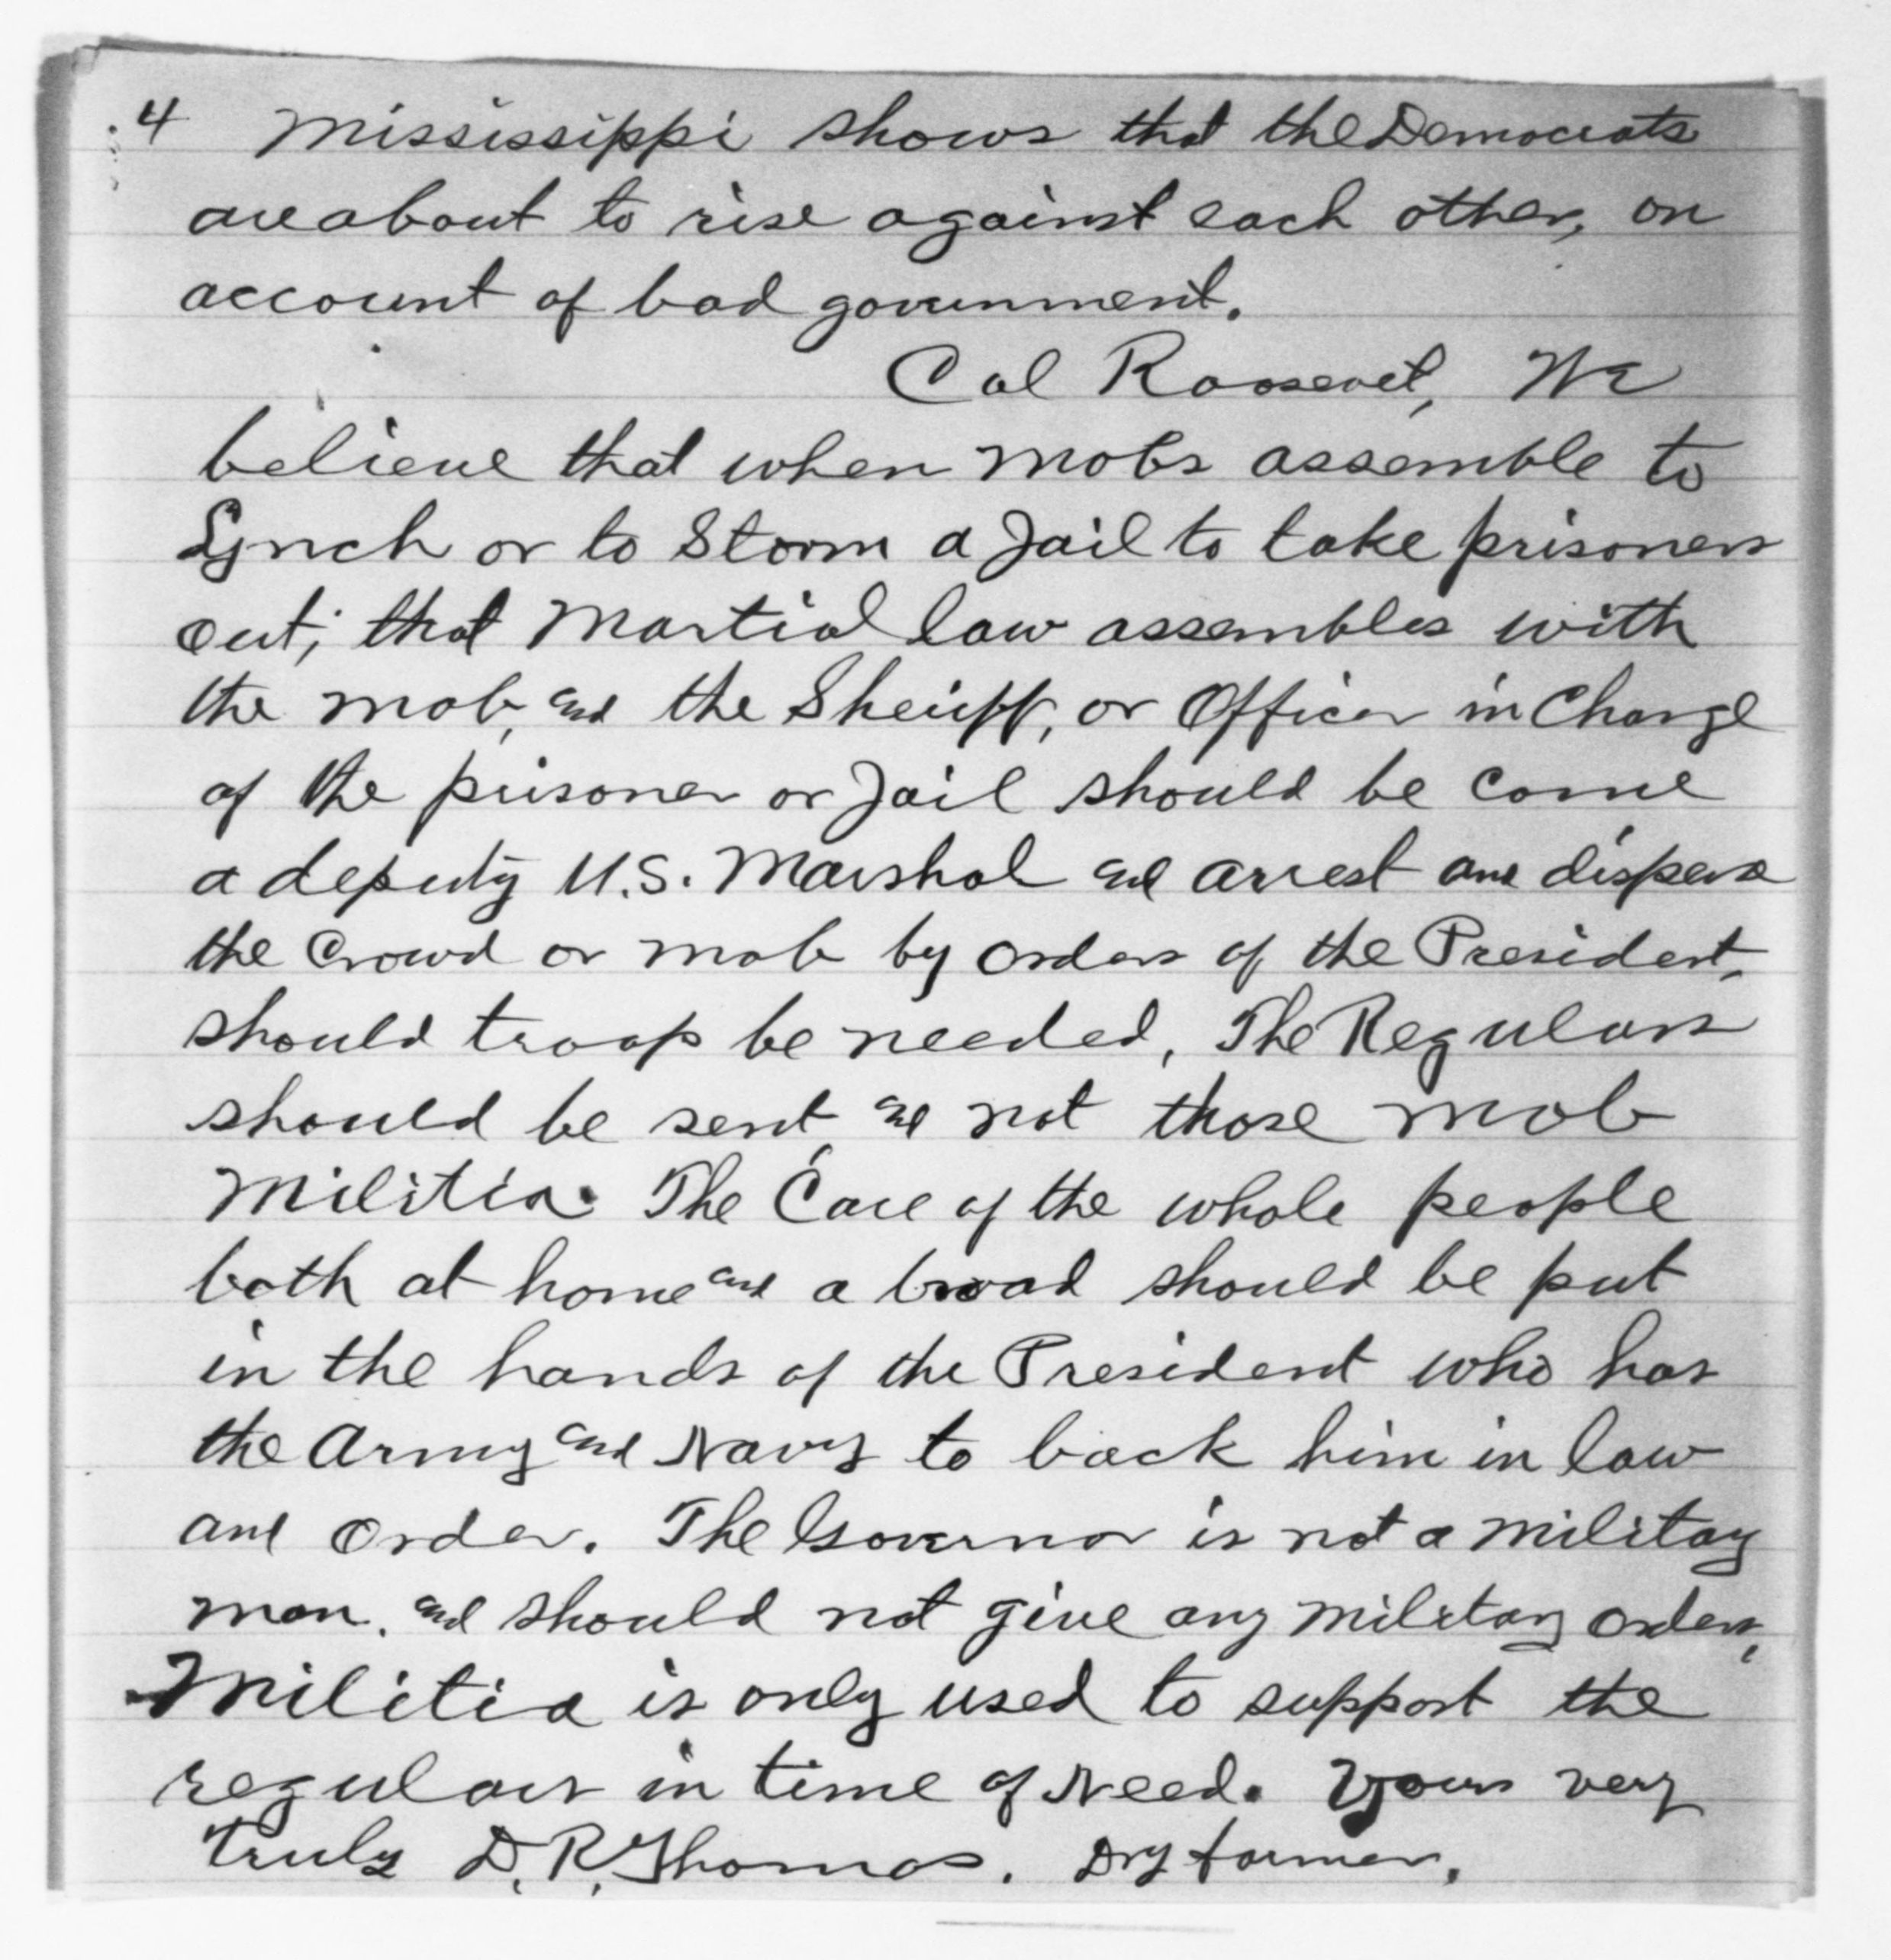 4 Mississippi shows that the Democrats
are about to rise against each other, on
account of bad government.
Col Roosevelt, We
believe that when mobs assemble to
Lynch or to Storm a Jail to take prisoners
out; that Martial law assembles with
the mob, and the Sheriff, or Officer in Charge
of the prisoner or Jail should be come
a deputy U.S. Marshal and arrest and disperse
the Crowd or mob by orders of the President,
should troop be needed, The Regulars
should be sent, and not those mob
Militia. The Care of the whole people
both at home and a broad should be put
in the hands of the President who has
the Army and Navy to back him in law
and Order. The Governor is not a military
man. and should not give any military orders,
Militia is only used to support the
regulars in time of Need. Yours very
truly D.R. Thomas. Dry farmer.